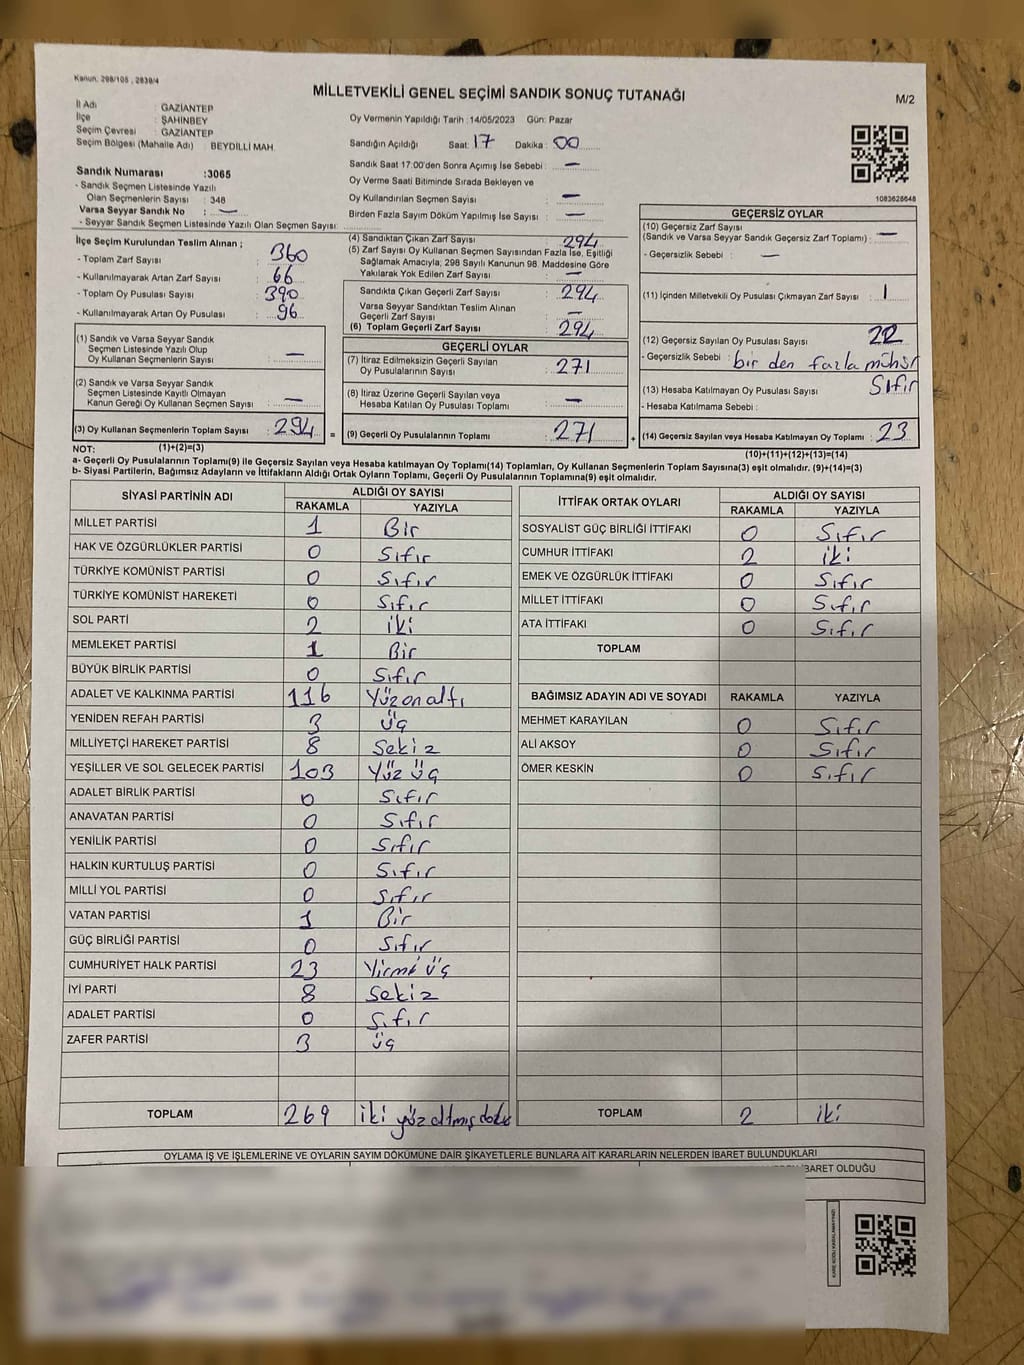 Kanun: 298/105 , 2839/4
MİLLETVEKİLİ GENEL SEÇİMİ SANDIK SONUÇ TUTANAĞI
M/2
İl Adı : GAZİANTEP
İlçe : ŞAHİNBEY
Seçim Çevresi : GAZİANTEP
Seçim Bölgesi (Mahalle Adı) : BEYDİLLİ MAH.
Sandık Numarası :3065
- Sandık Seçmen Listesinde Yazılı
Olan Seçmenlerin Sayısı : 348
Varsa Seyyar Sandık No : —
- Seyyar Sandık Seçmen Listesinde Yazılı Olan Seçmen Sayısı:
Oy Vermenin Yapıldığı Tarih :14/05/2023 Gün: Pazar
Sandığın Açıldığı Saat: 17 Dakika : 00
Sandık Saat 17:00'den Sonra Açılmış İse Sebebi : —
Oy Verme Saati Bitiminde Sırada Bekleyen ve
Oy Kullandırılan Seçmenlerin Sayısı : —
Birden Fazla Sayım Döküm Yapılmış İse Sayısı : —
1083626648
İlçe Seçim Kurulundan Teslim Alınan ;
- Toplam Zarf Sayısı : 360
- Kullanılmayarak Artan Zarf Sayısı : 66
- Toplam Oy Pusulası Sayısı : 390
- Kullanılmayarak Artan Oy Pusulası : 96
(1) Sandık ve Varsa Seyyar Sandık
Seçmen Listesinde Yazılı Olup
Oy Kullanan Seçmenlerin Sayısı : —
(2) Sandık ve Varsa Seyyar Sandık
Seçmen Listesinde Kayıtlı Olmayan
Kanun Gereği Oy Kullanan Seçmen Sayısı : —
(3) Oy Kullanan Seçmenlerin Toplam Sayısı : 294 =
(1)+(2)=(3)
(4) Sandıktan Çıkan Zarf Sayısı : 294
(5) Zarf Sayısı Oy Kullanan Seçmen Sayısından Fazla İse, Eşitliği
Sağlamak Amacıyla; 298 Sayılı Kanunun 98. Maddesine Göre
Yakılarak Yok Edilen Zarf Sayısı : —
Sandıkta Çıkan Geçerli Zarf Sayısı : 294
Varsa Seyyar Sandıktan Teslim Alınan
Geçerli Zarf Sayısı : —
(6) Toplam Geçerli Zarf Sayısı : 294
GEÇERLİ OYLAR
(7) İtiraz Edilmeksizin Geçerli Sayılan
Oy Pusulalarının Sayısı : 271
(8) İtiraz Üzerine Geçerli Sayılan veya
Hesaba Katılan Oy Pusulası Toplamı : —
(9) Geçerli Oy Pusulalarının Toplamı : 271 +
GEÇERSİZ OYLAR
(10) Geçersiz Zarf Sayısı
(Sandık ve Varsa Seyyar Sandık Geçersiz Zarf Toplamı) : —
- Geçersizlik Sebebi : —
(11) İçinden Milletvekili Oy Pusulası Çıkmayan Zarf Sayısı : 1
(12) Geçersiz Sayılan Oy Pusulası Sayısı : 22
- Geçersizlik Sebebi : bir den fazla mühür
(13) Hesaba Katılmayan Oy Pusulası Sayısı : Sıfır
- Hesaba Katılmama Sebebi :
(14) Geçersiz Sayılan veya Hesaba Katılmayan Oy Toplamı : 23
(10)+(11)+(12)+(13)=(14)
NOT:
a- Geçerli Oy Pusulalarının Toplamı(9) ile Geçersiz Sayılan veya Hesaba katılmayan Oy Toplamı(14) Toplamları, Oy Kullanan Seçmenlerin Toplam Sayısına(3) eşit olmalıdır. (9)+(14)=(3)
b- Siyasi Partilerin, Bağımsız Adayların ve İttifakların Aldığı Ortak Oyların Toplamı, Geçerli Oy Pusulalarının Toplamına(9) eşit olmalıdır.
SİYASİ PARTİNİN ADI ALDIĞI OY SAYISI
RAKAMLA YAZIYLA
MİLLET PARTİSİ 1 Bir
HAK VE ÖZGÜRLÜKLER PARTİSİ 0 Sıfır
TÜRKİYE KOMÜNİST PARTİSİ 0 Sıfır
TÜRKİYE KOMÜNİST HAREKETİ 0 Sıfır
SOL PARTİ 2 iki
MEMLEKET PARTİSİ 1 Bir
BÜYÜK BİRLİK PARTİSİ 0 Sıfır
ADALET VE KALKINMA PARTİSİ 116 Yüzonaltı
YENİDEN REFAH PARTİSİ 3 üç
MİLLİYETÇİ HAREKET PARTİSİ 8 Sekiz
YEŞİLLER VE SOL GELECEK PARTİSİ 103 Yüz üç
ADALET BİRLİK PARTİSİ 0 Sıfır
ANAVATAN PARTİSİ 0 Sıfır
YENİLİK PARTİSİ 0 Sıfır
HALKIN KURTULUŞ PARTİSİ 0 Sıfır
MİLLİ YOL PARTİSİ 0 Sıfır
VATAN PARTİSİ 1 Bir
GÜÇ BİRLİĞİ PARTİSİ 0 Sıfır
CUMHURİYET HALK PARTİSİ 23 Yirmi üç
İYİ PARTİ 8 Sekiz
ADALET PARTİSİ 0 Sıfır
ZAFER PARTİSİ 3 üç
TOPLAM 269 iki yüz altmış dokuz
İTTİFAK ORTAK OYLARI ALDIĞI OY SAYISI
RAKAMLA YAZIYLA
SOSYALİST GÜÇ BİRLİĞİ İTTİFAKI 0 Sıfır
CUMHUR İTTİFAKI 2 iki
EMEK VE ÖZGÜRLÜK İTTİFAKI 0 Sıfır
MİLLET İTTİFAKI 0 Sıfır
ATA İTTİFAKI 0 Sıfır
TOPLAM
BAĞIMSIZ ADAYIN ADI VE SOYADI RAKAMLA YAZIYLA
MEHMET KARAYILAN 0 Sıfır
ALİ AKSOY 0 Sıfır
ÖMER KESKİN 0 Sıfır
TOPLAM 2 iki
OYLAMA İŞ VE İŞLEMLERİNE VE OYLARIN SAYIM DÖKÜMÜNE DAİR ŞİKAYETLERLE BUNLARA AİT KARARLARIN NELERDEN İBARET BULUNDUKLARI
İBARET OLDUĞU